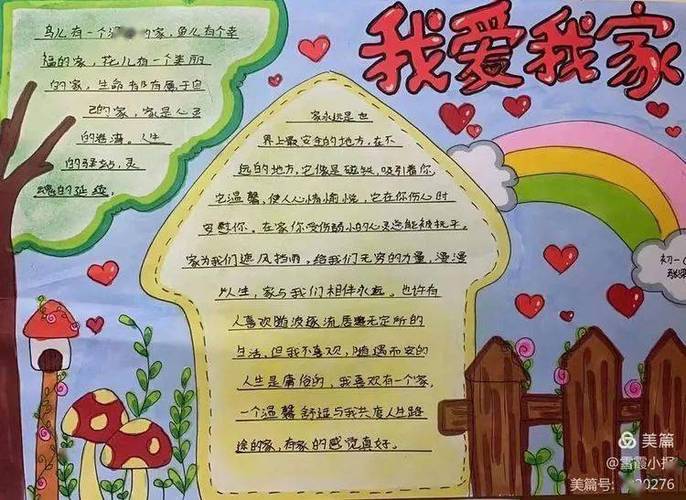 我爱我家
鸟儿有一个温 的家,鱼儿有个幸
福的家,花儿有一个美丽
的家,生命都有属于自
己的家,家是心灵
的港湾。人生
的驿站,灵
魂的延续。
家永远是世
界上最安全的地方,在不
远的地方,它像是磁铁,吸引着你
它温馨,使人心情愉悦,它在你伤心时
安慰你,在家你受伤弱小的心灵总能被抚平。
家为我们遮风挡雨,给我们无穷的力量,漫漫
人生,家与我们相伴永远。也许有
人喜欢随波逐流居无定所的
生活,但我不喜欢,随遇而安的
人生是庸俗的,我喜欢有一个家,
一个温馨舒适与我共度人生路
途的家,有家的感觉真好。
初一(
美篇
@雪霞小报
美篇号: 20276